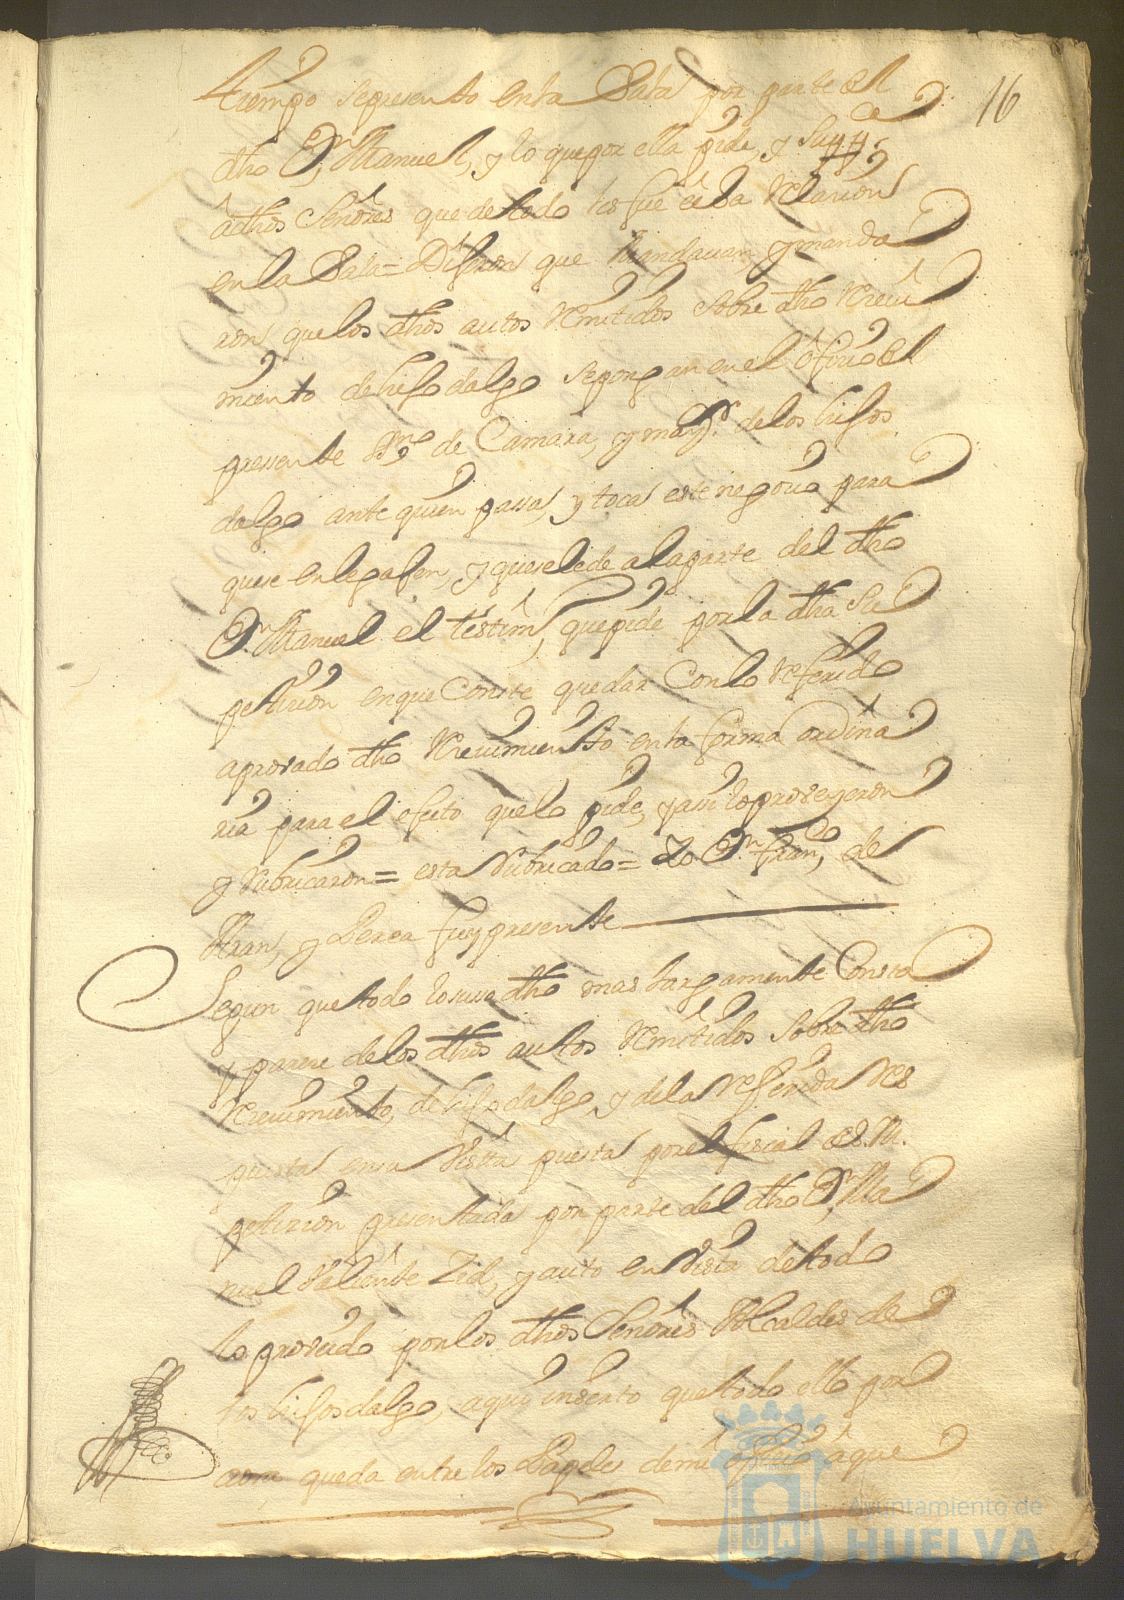 16
tiempo sepresento enla Sala por parte el
dho Dn Manuel, y lo quepor ella pide, y Supp.ca
adhos Señores que de todo les fue êcha Relazion
en la Sala = Dijeron que Mandauan, y manda
ron, quelos dhos autos Remitidos Sobre dho Reciui
miento dehijo dalgo sepongan en el ôficio el
pressente Srno de Camara, y may.r delos hijos
dalgo ante quien passa, y toca este negocio para
que se enlegasen, y quese le de alaparte del dho
Dn Manuel el testim, que pide por la dha Su
petizion enque Conste quedar Conlo Referido
aprovado dho Reciuimiento enla forma ordina
ria para el efecto quelo pide, y assi lo proveyeron
y Rubricaron = esta Rubricado = Yo Dn Fran,co de
Aran, y Perea fuy presente
Segun que todo lo suso dho mas largamente Consta
y pareze de los dhos autos Remitidos Sobre dho
Reciuimiento, de hijo dalgo, y dela Referida Res
puesta en su Vista puesta por el fiscal de S. M.
petizion presentada por parte del dho Dn Ma
nuel Valiente Zid, y auto en Vista de todo
lo proveido por los dhos Señores Alcaldes de
los hijos dalgo, aqui inserto que todo ello por
aora queda entre los Papeles de mi ôficio âque
Ayuntamiento de
HUELVA